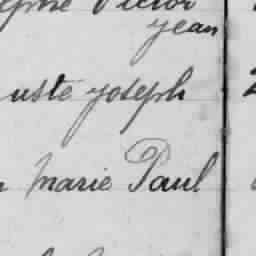 Victor
jean
uste joseph
marie Paul